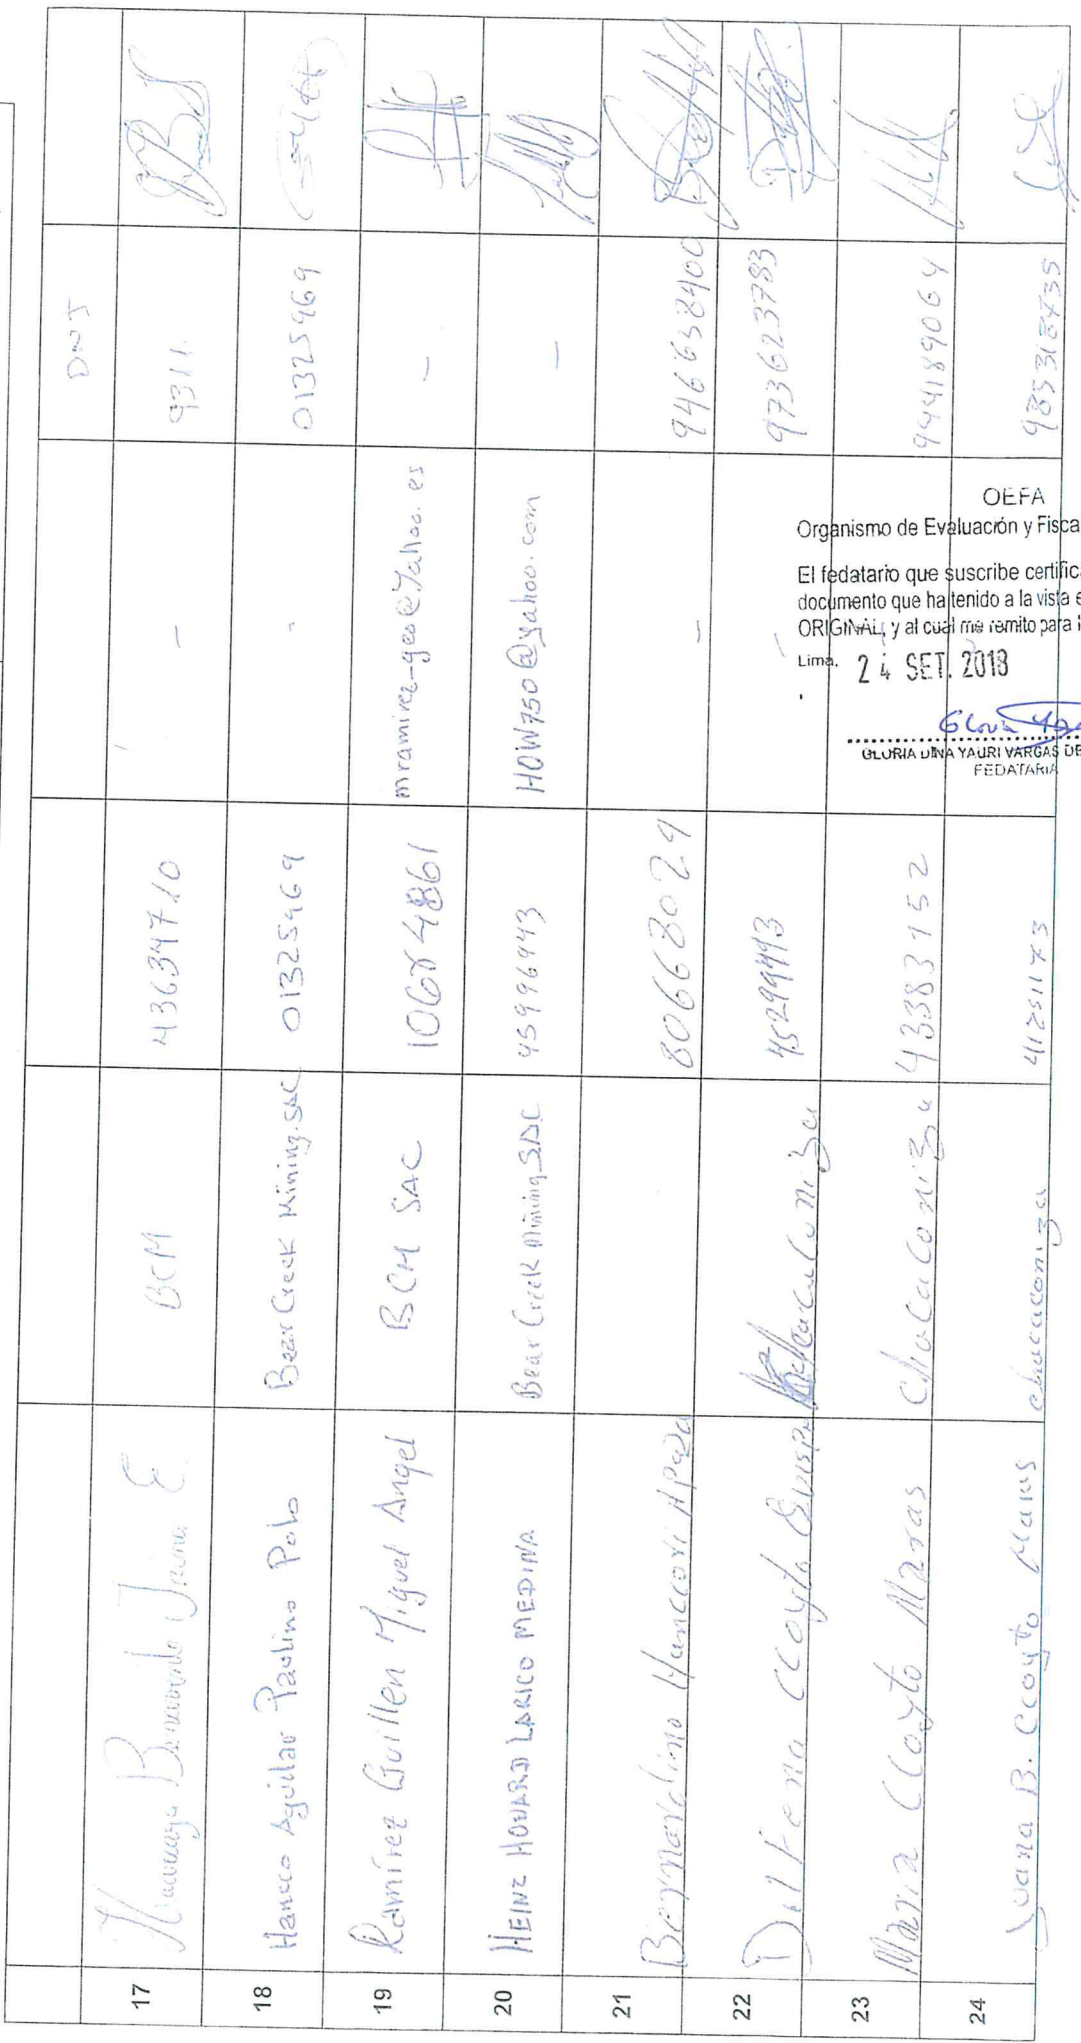 DNI
17 BCM 43634710 - 9311
18 Hancco Aguilar Paulino Polo Bear Creek Mining. SAC 01325469 - 01325469
19 Ramirez Guillen Miguel Angel BCM SAC 10684861 mramirez-geo@Yahoo.es -
20 HEINZ HOWARD LARICO MEDINA Bear Creek Mining SAC 45996943 HOW750@yahoo.com -
21 Bernardino Hanccori Apaza 80668029 - 946638400
22 Ccoyto Quispe 45299493 - 973623783
23 Maria Ccoyto Maras Chacaconiza 43383152 944189064
24 Juana B. Ccoyto Maras chacaconiza 41251173 985316435
OEFA
Organismo de Evaluación y Fisca
El fedatario que suscribe certific
documento que ha tenido a la vista e
ORIGINAL, y al cual me remito para l
Lima, 24 SET. 2018
GLORIA DINA YAURI VARGAS DE
FEDATARIA